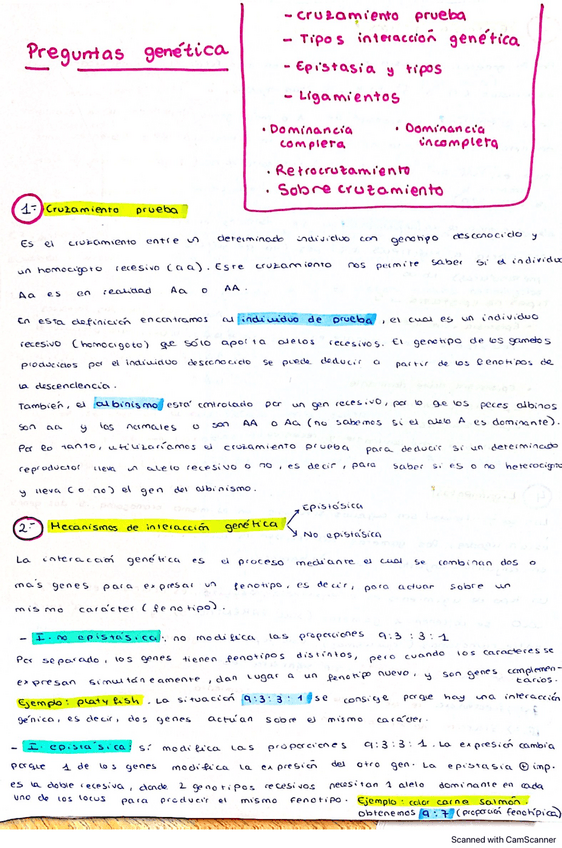 Preguntas genética
- Cruzamiento prueba
- Tipos interacción genética
- Epistasia y tipos
- Ligamientos
• Dominancia completa
• Dominancia incompleta
• Retrocruzamiento
• Sobrecruzamiento
1:- Cruzamiento prueba
Es el cruzamiento entre un determinado individuo con genotipo desconocido y
un homocigoto recesivo (aa). Este cruzamiento nos permite saber si el individuo
Aa es en realidad Aa o AA.
En esta definición encontramos al individuo de prueba, el cual es un individuo
recesivo (homocigoto) qe sólo aporta alelos recesivos. El genotipo de los gametos
producidos por el individuo desconocido se puede deducir a partir de los fenotipos de
la descendencia.
También, el albinismo está controlado por un gen recesivo, por lo qe los peces albinos
son aa y los normales o son AA o Aa (no sabemos si el alelo A es dominante).
Por lo tanto, utilizaríamos el cruzamiento prueba para deducir si un determinado
reproductor lleva un alelo recesivo o no, es decir, para saber si es o no heterocigoto
y lleva (o no) el gen del albinismo.
2:- Mecanismos de interacción genética
Epistásica
No epistásica
La interacción genética es el proceso mediante el cual se combinan dos o
más genes para expresar un fenotipo, es decir, para actuar sobre un
mismo carácter (fenotipo).
- I. no epistásica: no modifica las proporciones 9:3:3:1
Por separado, los genes tienen fenotipos distintos, pero cuando los caracteres se
expresan simultáneamente, dan lugar a un fenotipo nuevo, y son genes complemen-
tarios.
Ejemplo: platyfish. La situación 9:3:3:1 se consige porque hay una interacción
génica, es decir, dos genes actúan sobre el mismo carácter.
- I. epistásica: sí modifica las proporciones 9:3:3:1. La expresión cambia
porque 1 de los genes modifica la expresión del otro gen. La epistasia ⊕ imp.
es la doble recesiva, donde 2 genotipos recesivos necesitan 1 alelo dominante en cada
uno de los locus para producir el mismo fenotipo. Ejemplo: color carne salmón.
obtenemos 9:7 (proporción fenotípica)
Scanned with CamScanner